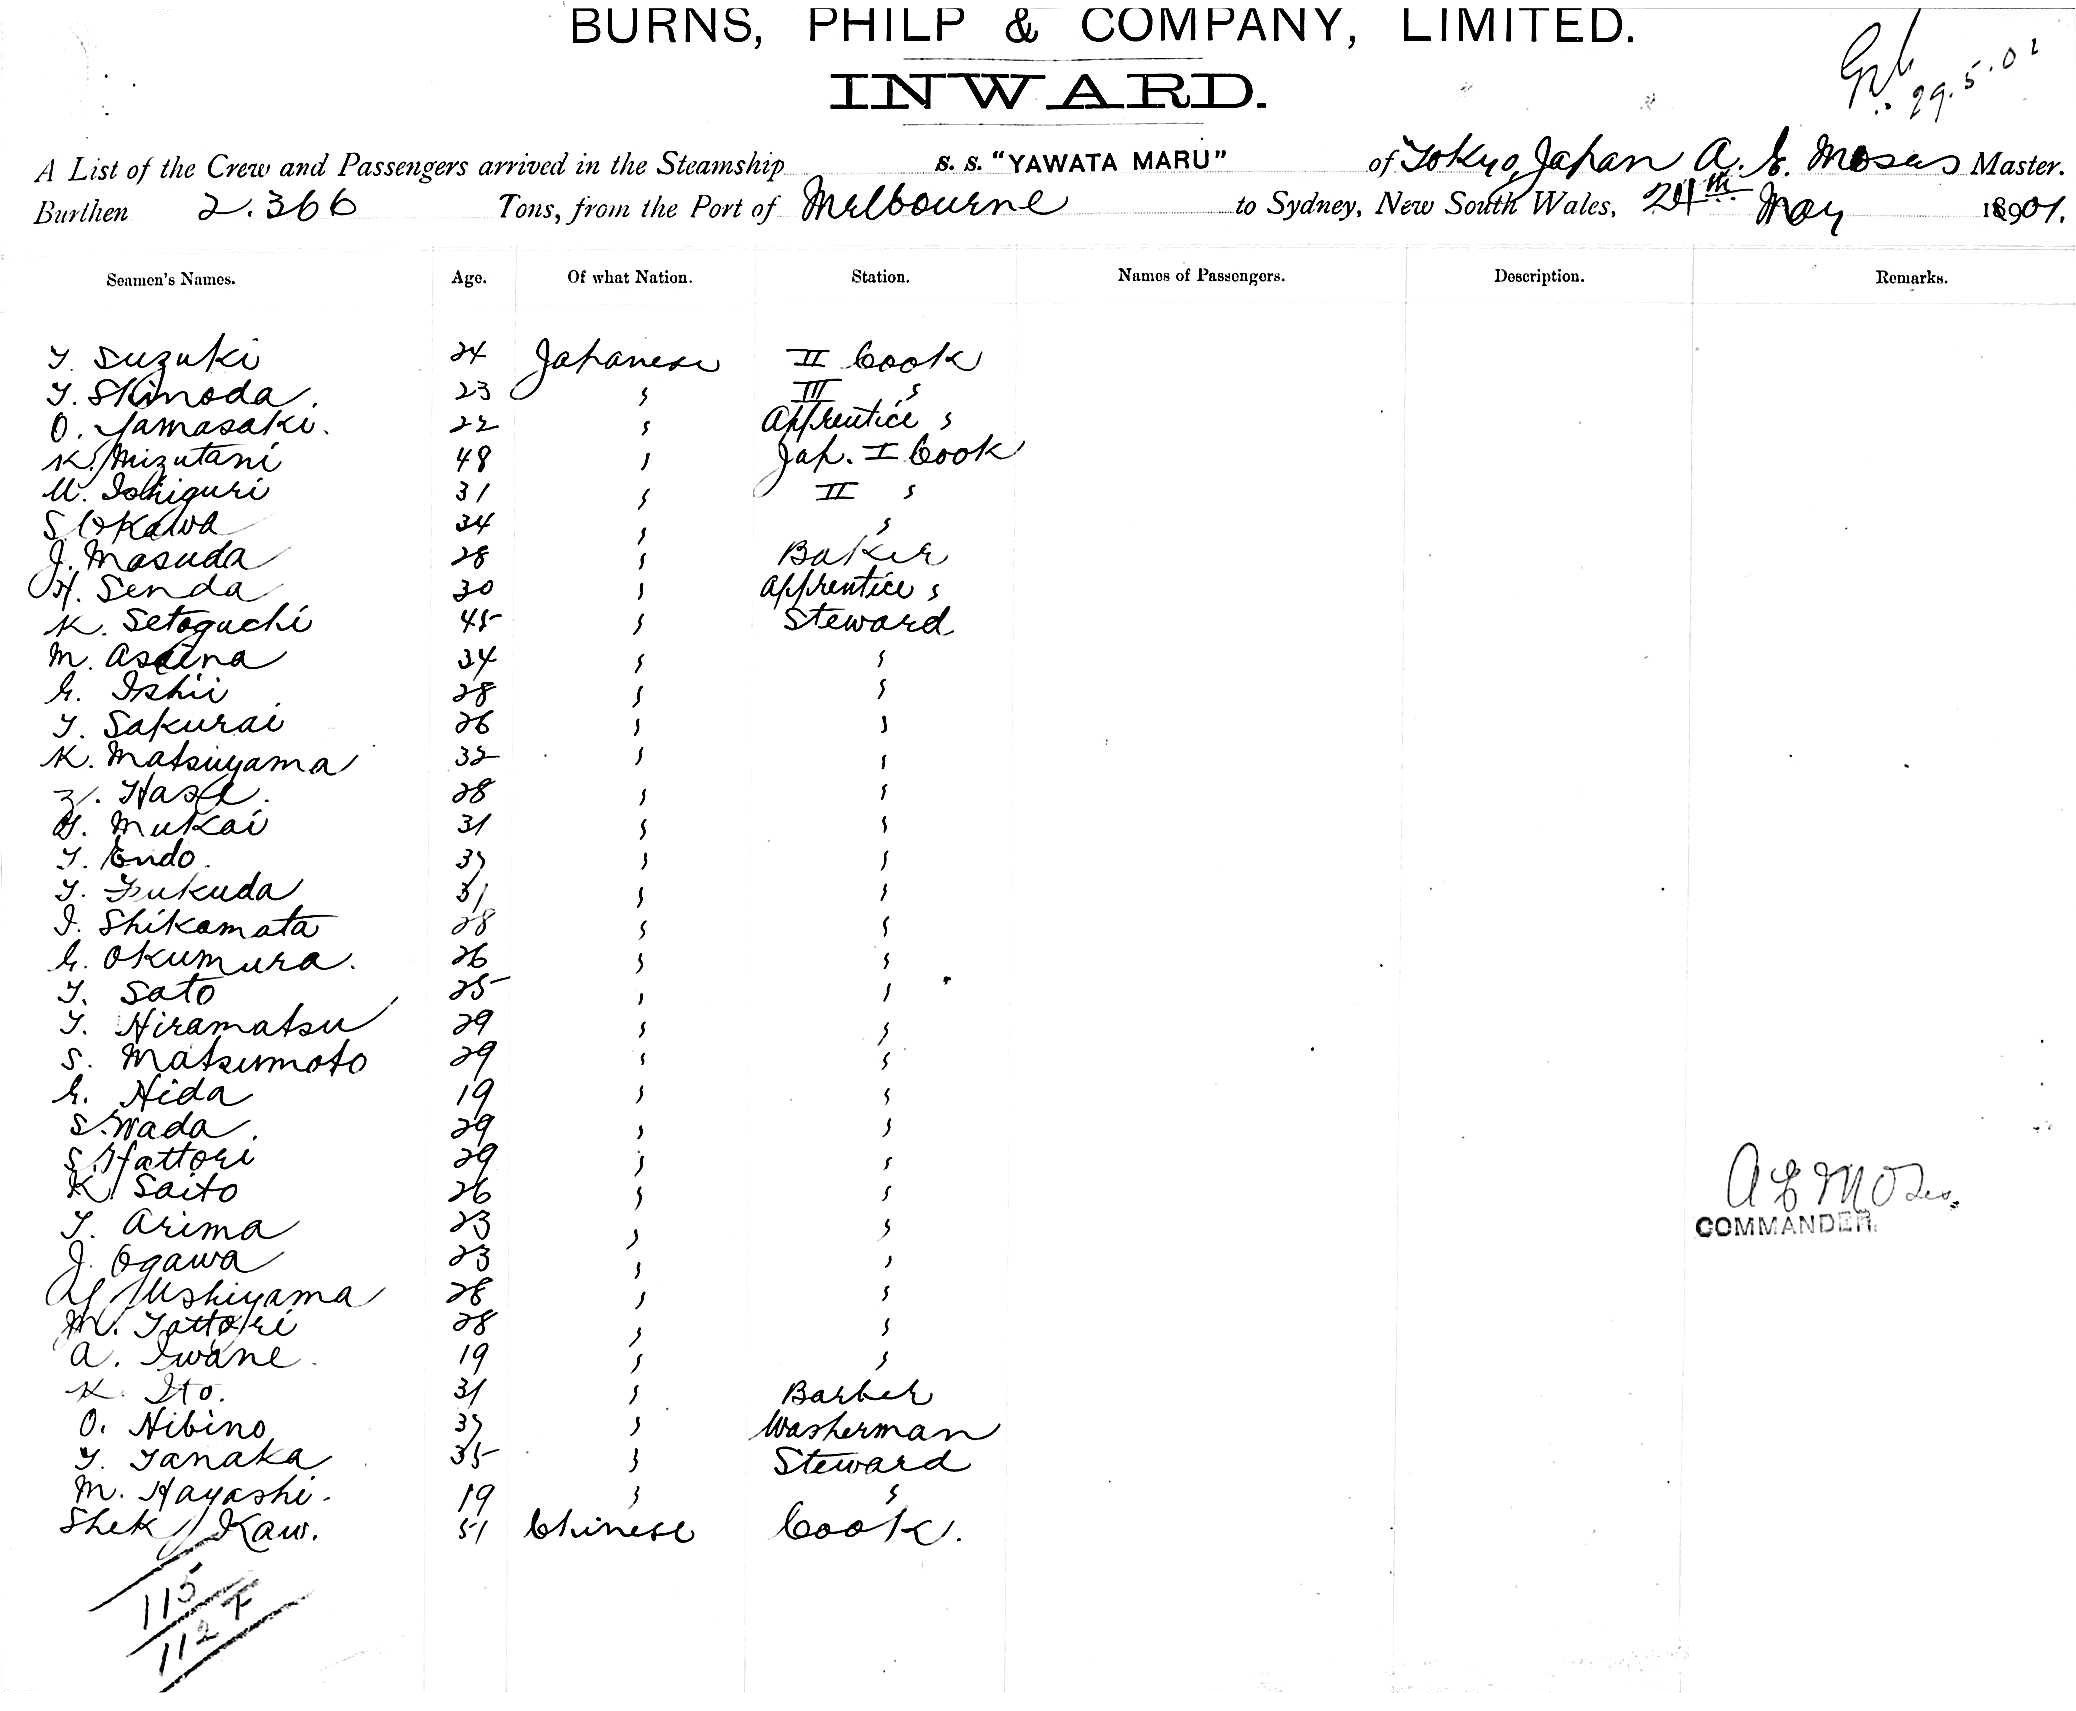 BURNS, PHILP & COMPANY, LIMITED.
29.5.01
INWARD.
A List of the Crew and Passengers arrived in the Steamship S. S. "YAWATA MARU" of Tokyo, Japan A. E. Moses Master.
Burthen 2.366 Tons, from the Port of Melbourne to Sydney, New South Wales, 24th May 1901.
Seamen's Names. Age. Of what Nation. Station. Names of Passengers. Description. Remarks.
T. Suzuki 24 Japanese II Cook
T. Shimoda. 23 " III "
O. Yamasaki. 22 " Apprentice "
K. Mizutani 48 " Jap. I Cook
U. Ishiguri 31 " II "
S. Okawa 34 " "
J. Masuda 28 " Baker
H. Senda 30 " Apprentice "
K. Setoguchi 45 " Steward
M. Asaina 34 " "
E. Ishii 28 " "
T. Sakurai 26 " "
K. Matsuyama 32 " "
Z. Hase. 28 " "
G. Mukai 31 " "
T. Endo. 37 " "
T. Fukuda 31 " "
I. Shikamata 28 " "
E. Okumura. 26 " "
T. Sato 25 " "
T. Hiramatsu 29 " "
S. Matsumoto 29 " "
E. Hida 19 " "
S. Wada 29 " "
S. Hattori 29 " "
K. Saito 26 " "
T. Arima 23 " "
J. Ogawa 23 " "
Ushiyama 28 " "
M. Tottori 28 " "
A. Iwane. 19 " "
K. Ito. 31 " Barber
O. Hibino 37 " Washerman
T. Tanaka 35 " Steward
M. Hayashi. 19 " "
Shek Kaw. 51 Chinese Cook.
A E Moses.
COMMANDER.
115
112